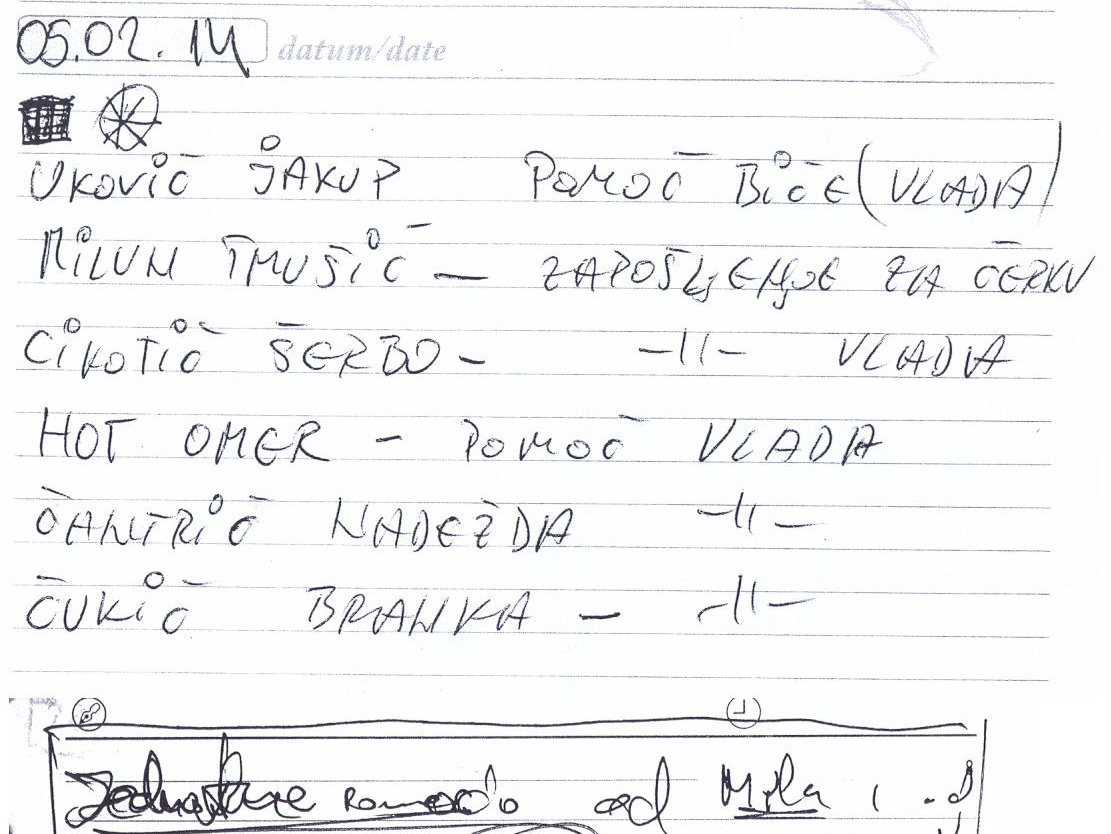 05.02.14 datum/date
UKOVIĆ JAKUP POMOĆ BIĆE (VLADA)
MILUN TMUŠIĆ — ZAPOŠLJENJE ZA ĆERKU
CIKOTIĆ ŠERBO - -||- VLADA
HOT OMER - POMOĆ VLADA
ČANTRIĆ NADEŽDA -||-
ČUKIĆ BRANKA - -||-
od Mila i